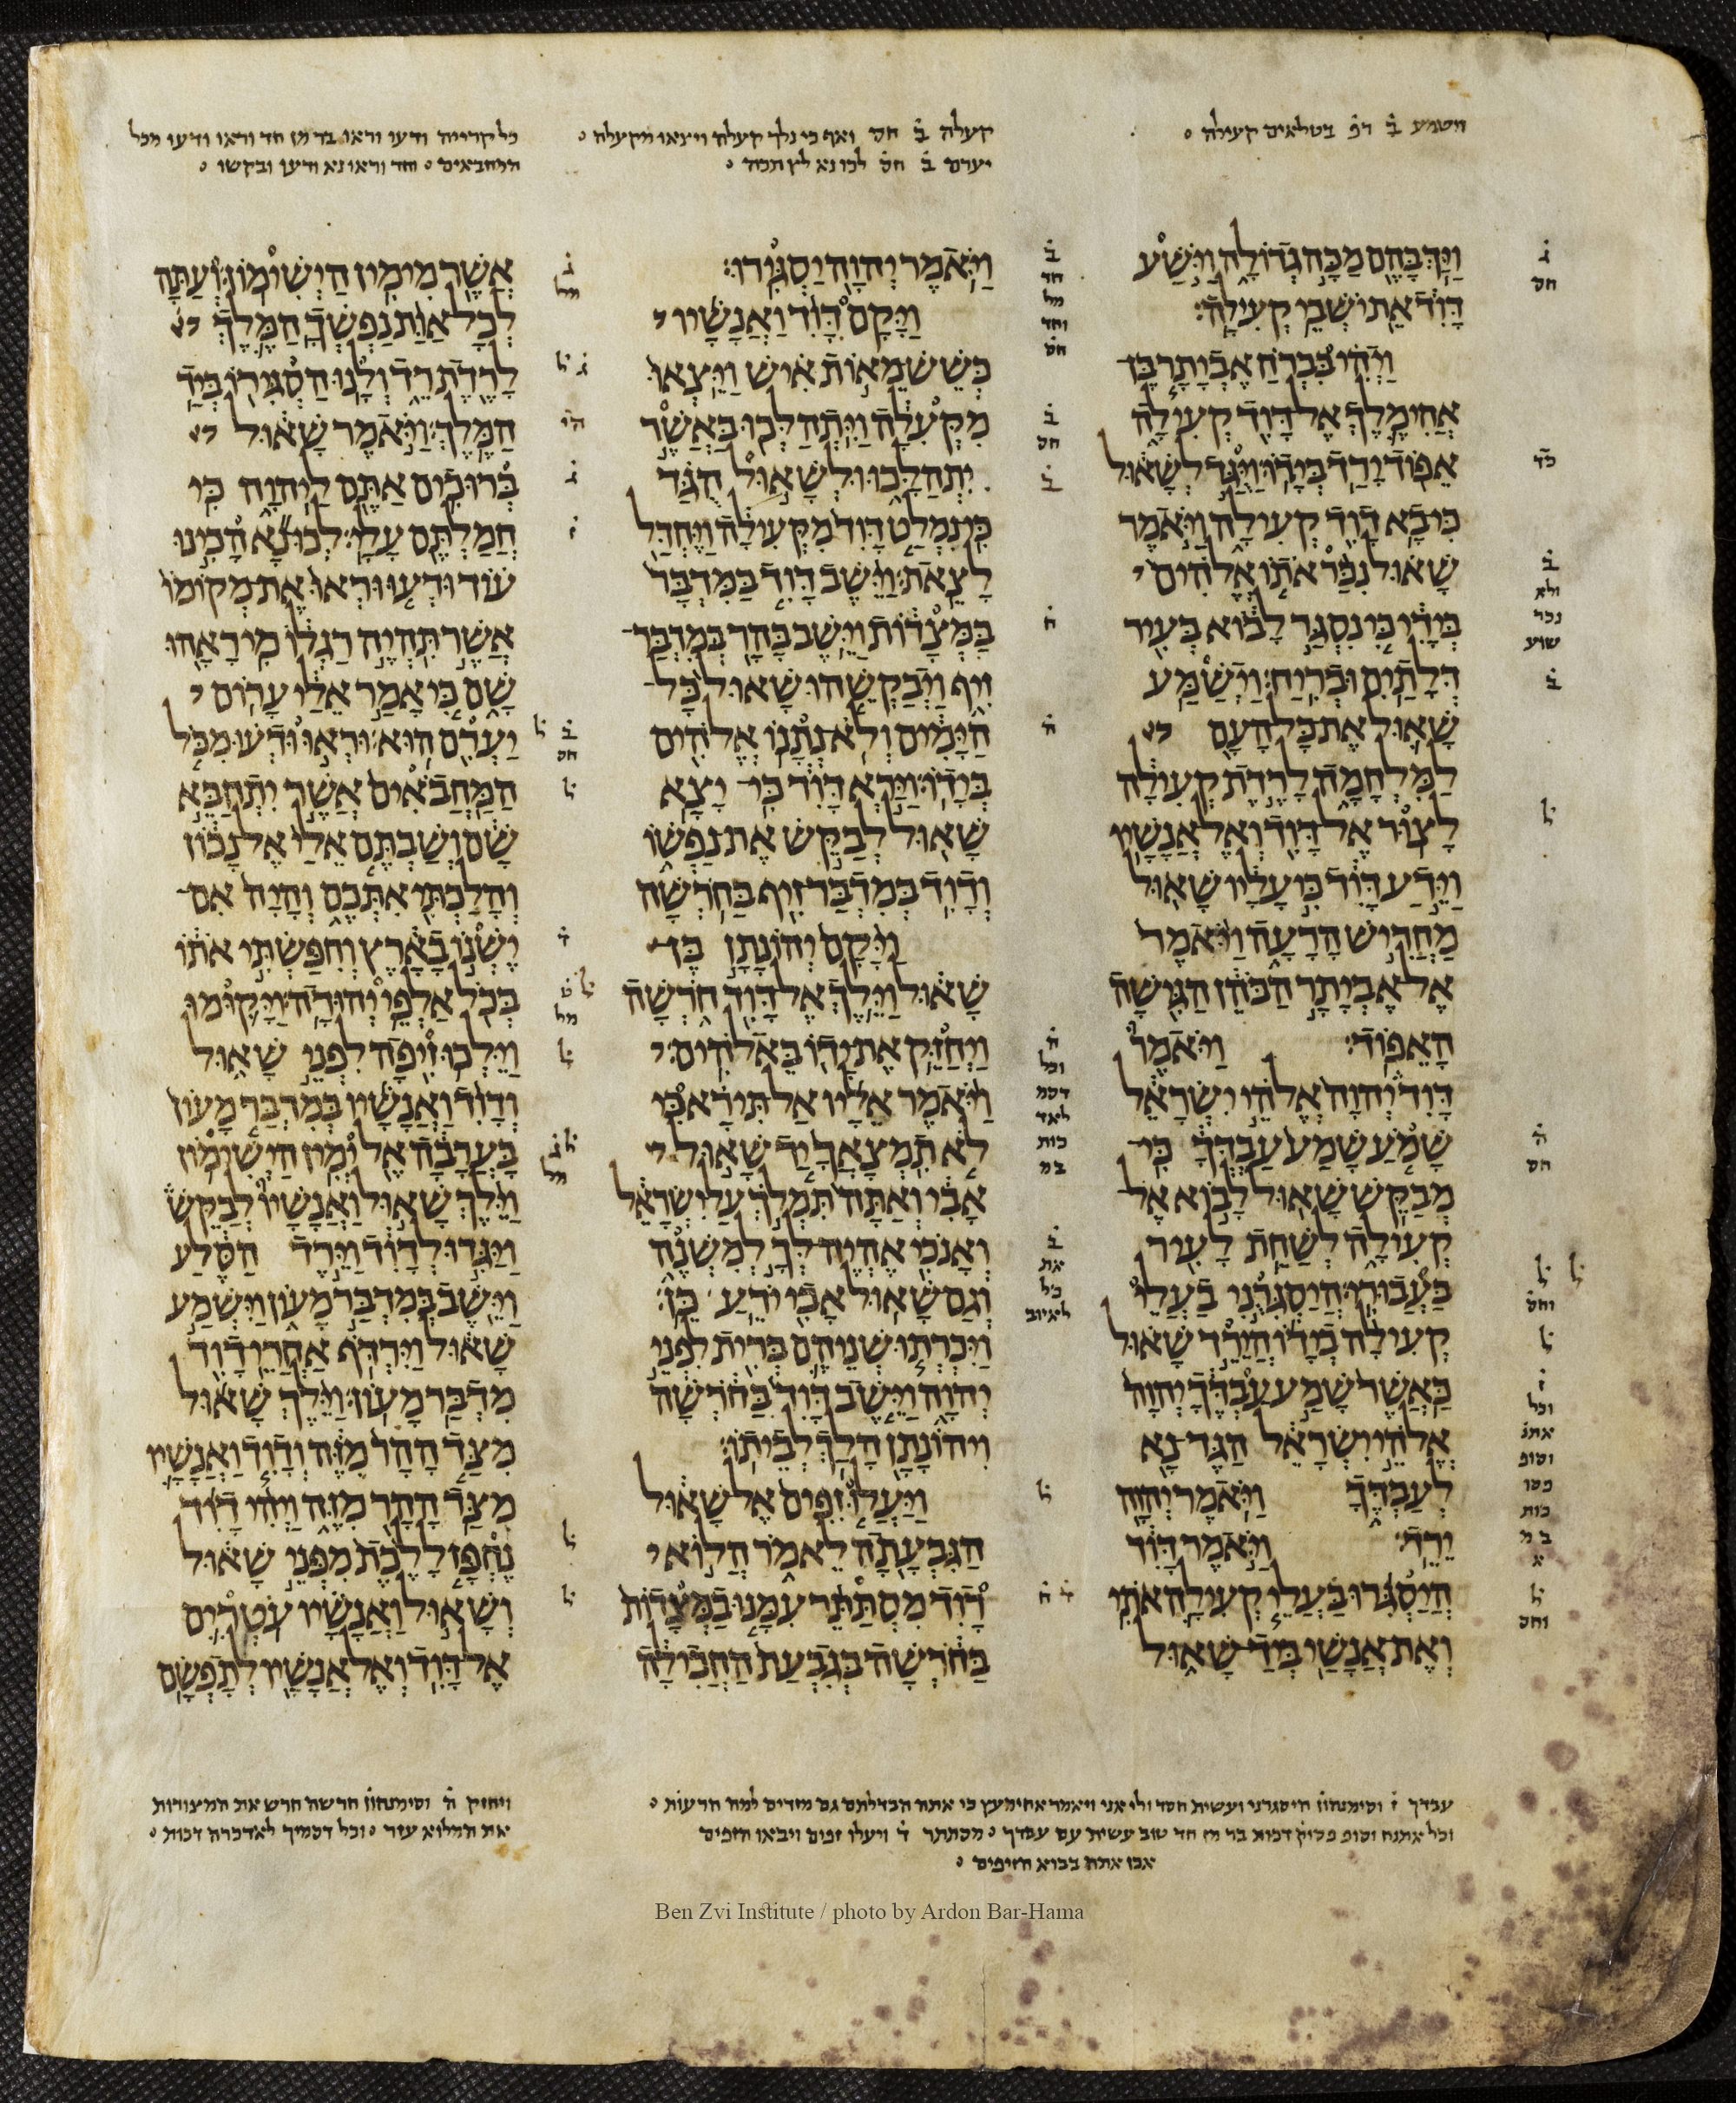 וישמע ב דפ בטלאים קעילה
קעלה ב חס ואף כי נלך קעלה ויצאו מקעלה
יערם ב חס לכו נא לץ תכה
כל קריה ודעו וראו בר מן חד וראו ודעו מכל
המחבאים וחד וראו נא ודעו ובקשו
ויך בהם מכה גדולה וישע
דוד את ישבי קעילה
ויהי בברח אביתר בן
אחימלך אל דוד קעילה
אפוד ירד בידו ויגד לשאול
כי בא דוד קעילה ויאמר
שאול נכר אתו אלהים
בידי כי נסגר לבוא בעיר
דלתים ובריח וישמע
שאול את כל העם
למלחמה לרדת קעילה
לצור אל דוד ואל אנשיו
וידע דוד כי עליו שאול
מחריש הרעה ויאמר
אל אביתר הכהן הגישה
האפוד ויאמר
דוד יהוה אלהי ישראל
שמע שמע עבדך כי
מבקש שאול לבוא אל
קעילה לשחת לעיר
בעבורי היסגרני בעלי
קעילה בידו הירד שאול
כאשר שמע עבדך יהוה
אלהי ישראל הגד נא
לעבדך ויאמר יהוה
ירד ויאמר דוד
היסגרו בעלי קעילה אתי
ואת אנשי ביד שאול
ויאמר יהוה יסגירו
ויקם דוד ואנשיו
כשש מאות איש ויצאו
מקעלה ויתהלכו באשר
יתהלכו ולשאול הגד
כי נמלט דוד מקעילה ויחדל
לצאת וישב דוד במדבר
במצדות וישב בהר במדבר
זיף ויבקשהו שאול כל
הימים ולא נתנו אלהים
בידו וירא דוד כי יצא
שאול לבקש את נפשו
ודוד במדבר זיף בחרשה
ויקם יהונתן בן
שאול וילך אל דוד חרשה
ויחזק את ידו באלהים
ויאמר אליו אל תירא כי
לא תמצאך יד שאול
אבי ואתה תמלך על ישראל
ואנכי אהיה לך למשנה
וגם שאול אבי ידע כן
ויכרתו שניהם ברית לפני
יהוה וישב דוד בחרשה
ויהונתן הלך לביתו
ויעלו זפים אל שאול
הגבעתה לאמר הלוא
דוד מסתתר עמנו במצדות
בחרשה בגבעת החכילה
אשר מימין הישימון ועתה
לכל אות נפשך המלך
לרדת רד ולנו הסגירו ביד
המלך ויאמר שאול
ברוכים אתם ליהוה כי
חמלתם עלי לכו נא הכינו
עוד ודעו וראו את מקומו
אשר תהיה רגלו מי ראהו
שם כי אמר אלי ערום
יערם הוא וראו ודעו מכל
המחבאים אשר יתחבא
שם ושבתם אלי אל נכון
והלכתי אתכם והיה אם
ישנו בארץ וחפשתי אתו
בכל אלפי יהודה ויקומו
וילכו זיפה לפני שאול
ודוד ואנשיו במדבר מעון
בערבה אל ימין הישימון
וילך שאול ואנשיו לבקש
ויגדו לדוד וירד הסלע
וישב במדבר מעון וישמע
שאול וירדף אחרי דוד
מדבר מעון וילך שאול
מצד ההר מזה ודוד ואנשיו
מצד ההר מזה ויהי דוד
נחפז ללכת מפני שאול
ושאול ואנשיו עטרים
אל דוד ואל אנשיו לתפשם
עבדך וסימנהון היסגרני ועשית חסד ולי אני ויאמר אחימעץ כי אתה הבדלתם גם מזדים למה הרעות
וכל אתנח וסוף פסוק דכות בר מן חד טוב עשית עם עבדך מסתתר ד ויעלו זפים ויבאו הזפים
אבו אתה בבוא הזיפים
ויחזק ה וסימנהון חדשה חרש את המצודות
את המלוא עזר וכל דסמיך לאדכרה דכות
Ben Zvi Institute / photo by Ardon Bar-Hama